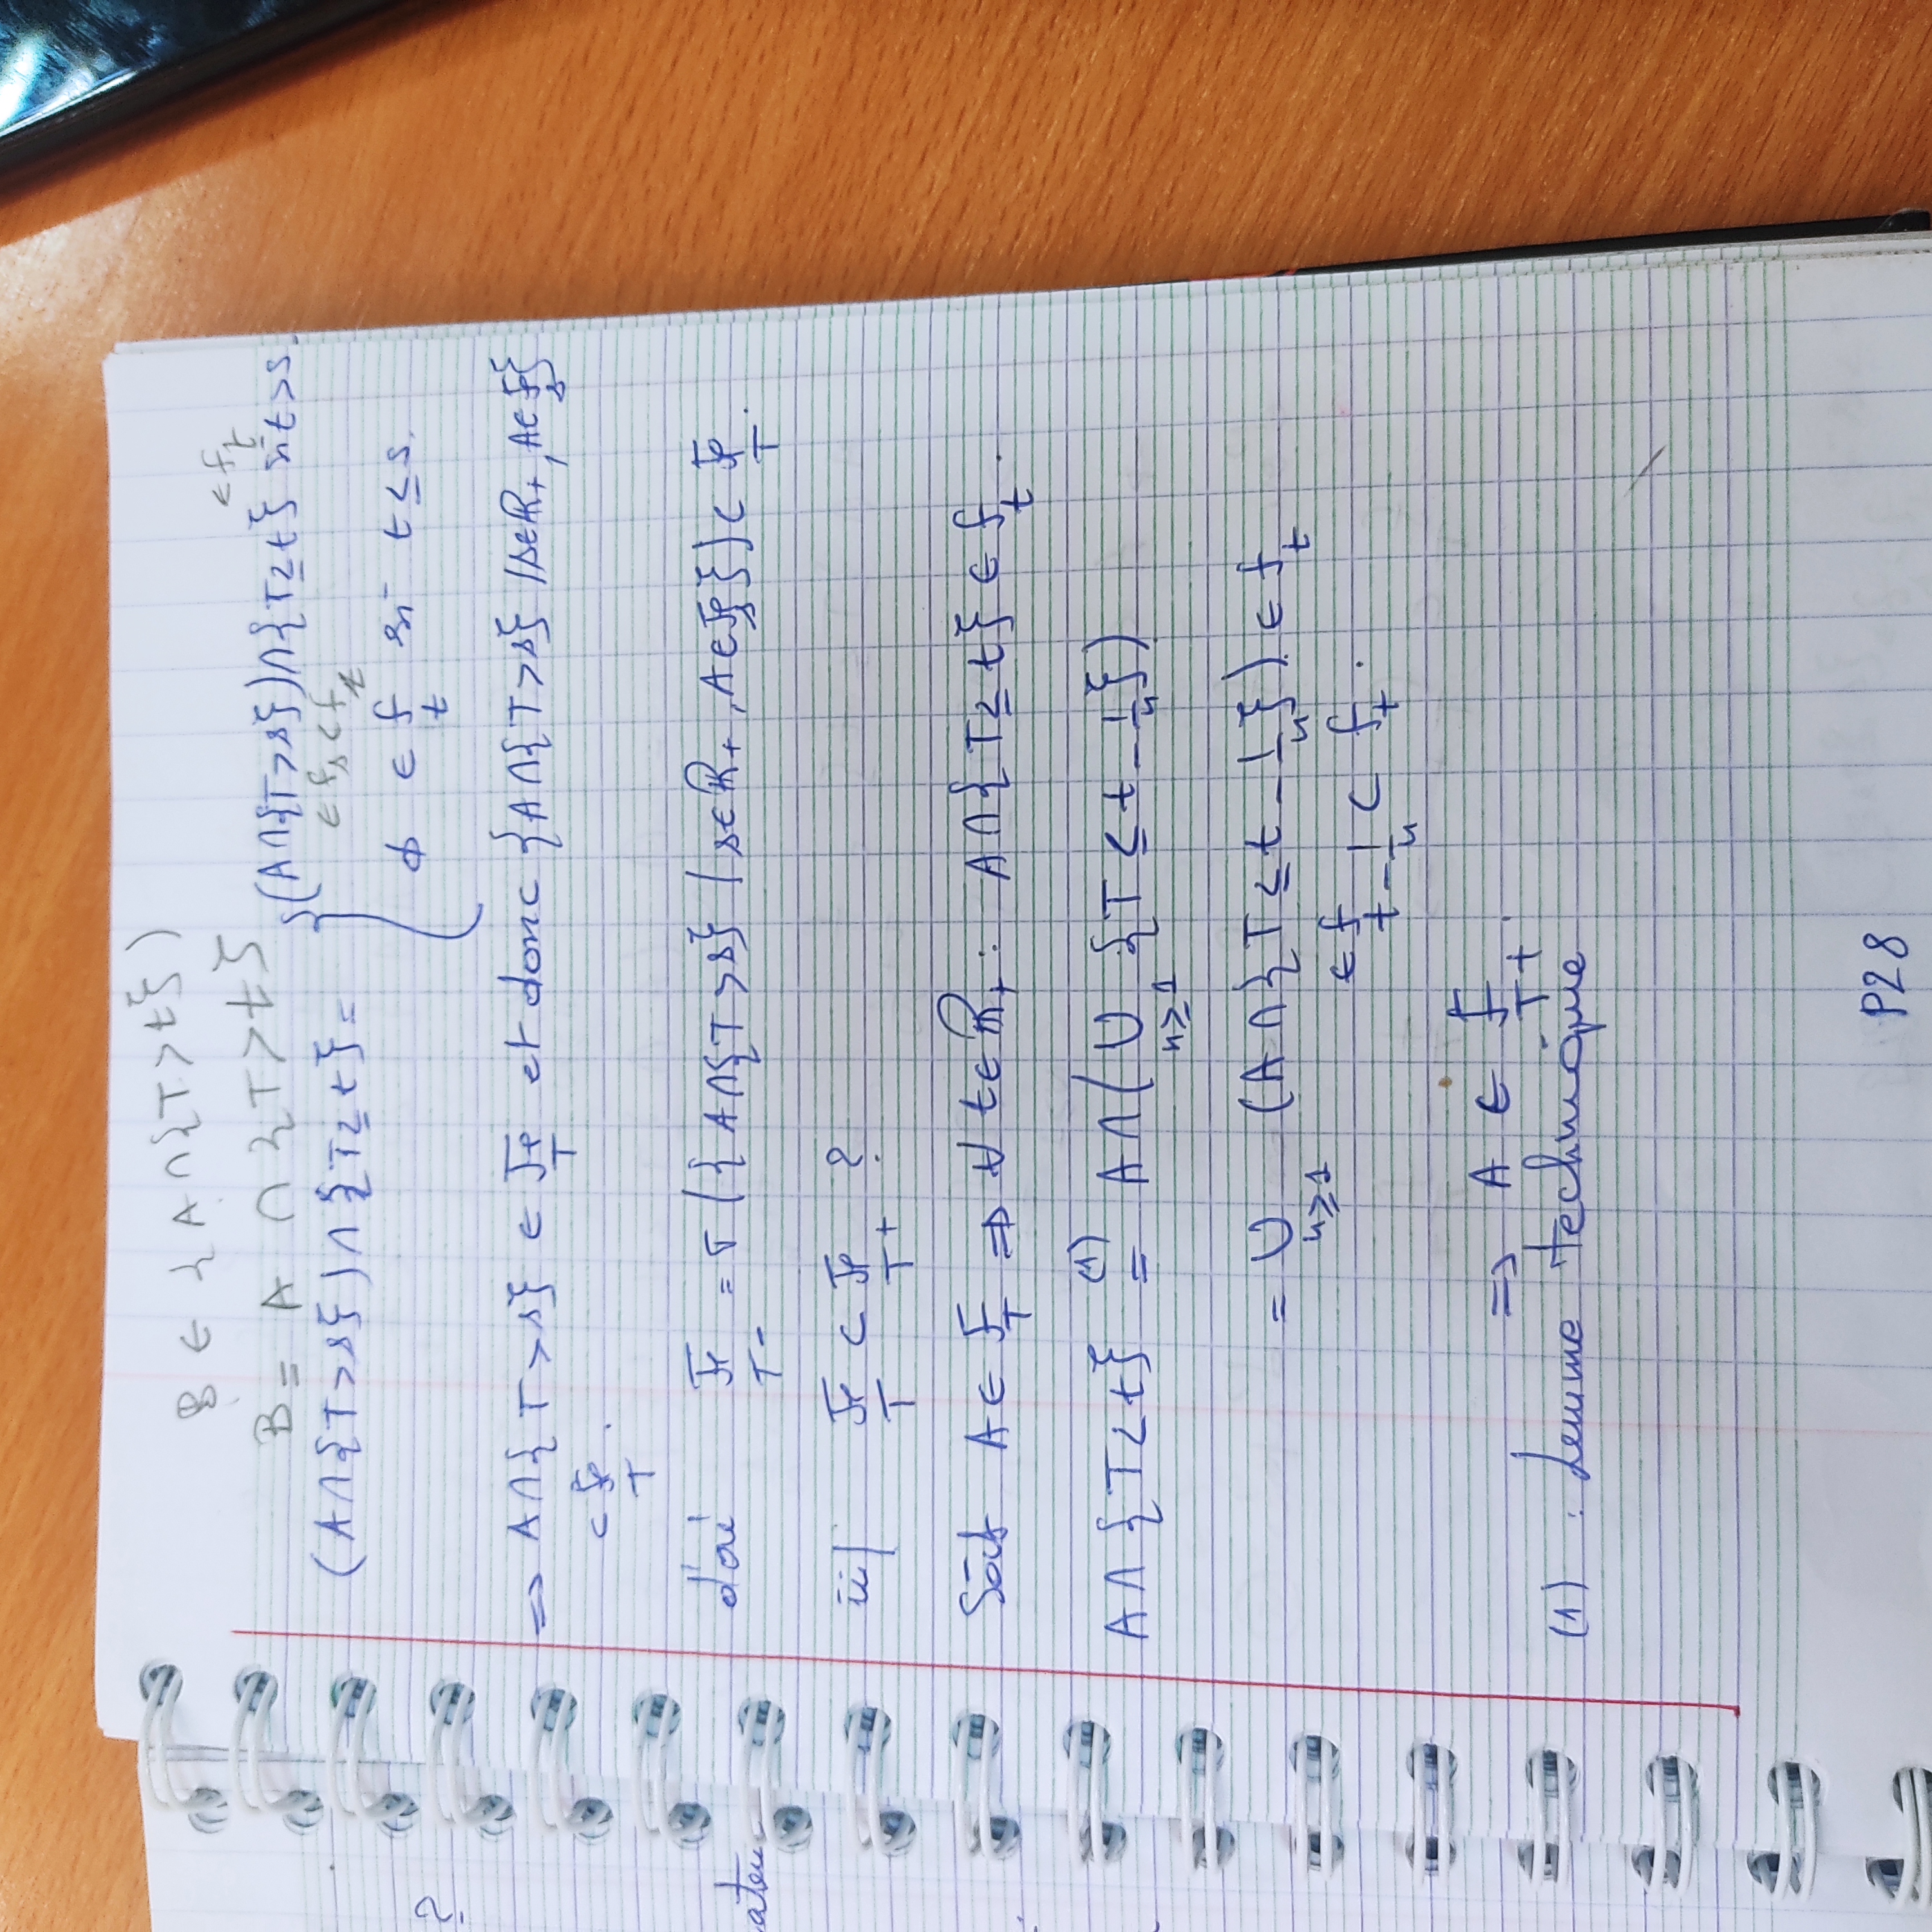 B ∈ {A ∩ {T > t})
B = A ∩ {T > t}
∈ f_t
(A∩{T>s})∩{T≤t} = { (A∩{T>s})∩{T≤t} si t>s.
∈ f_s ⊂ f_t
∅ ∈ f_t si t ≤ s.
⇒ A∩{T>s} ∈ F_T et donc {A∩{T>s} / s∈ℝ+, A∈F_s}
⊂ F_T .
d'où F_T- = σ({A∩{T>s} / s∈ℝ+, A∈F_s}) ⊂ F_T.
ii/ F_T ⊂ F_T+ ?
Soit A ∈ F_T ⇒ ∀ t∈ℝ+ : A∩{T≤t} ∈ f_t.
A∩{T<t} =^(1) A∩(∪_{n≥1} {T ≤ t - 1/n})
= ∪_{n≥1} (A∩{T ≤ t - 1/n}) ∈ f_t
∈ f_{t - 1/n} ⊂ f_t.
⇒ A ∈ F_T+.
(1) : Lemme technique
P28
?